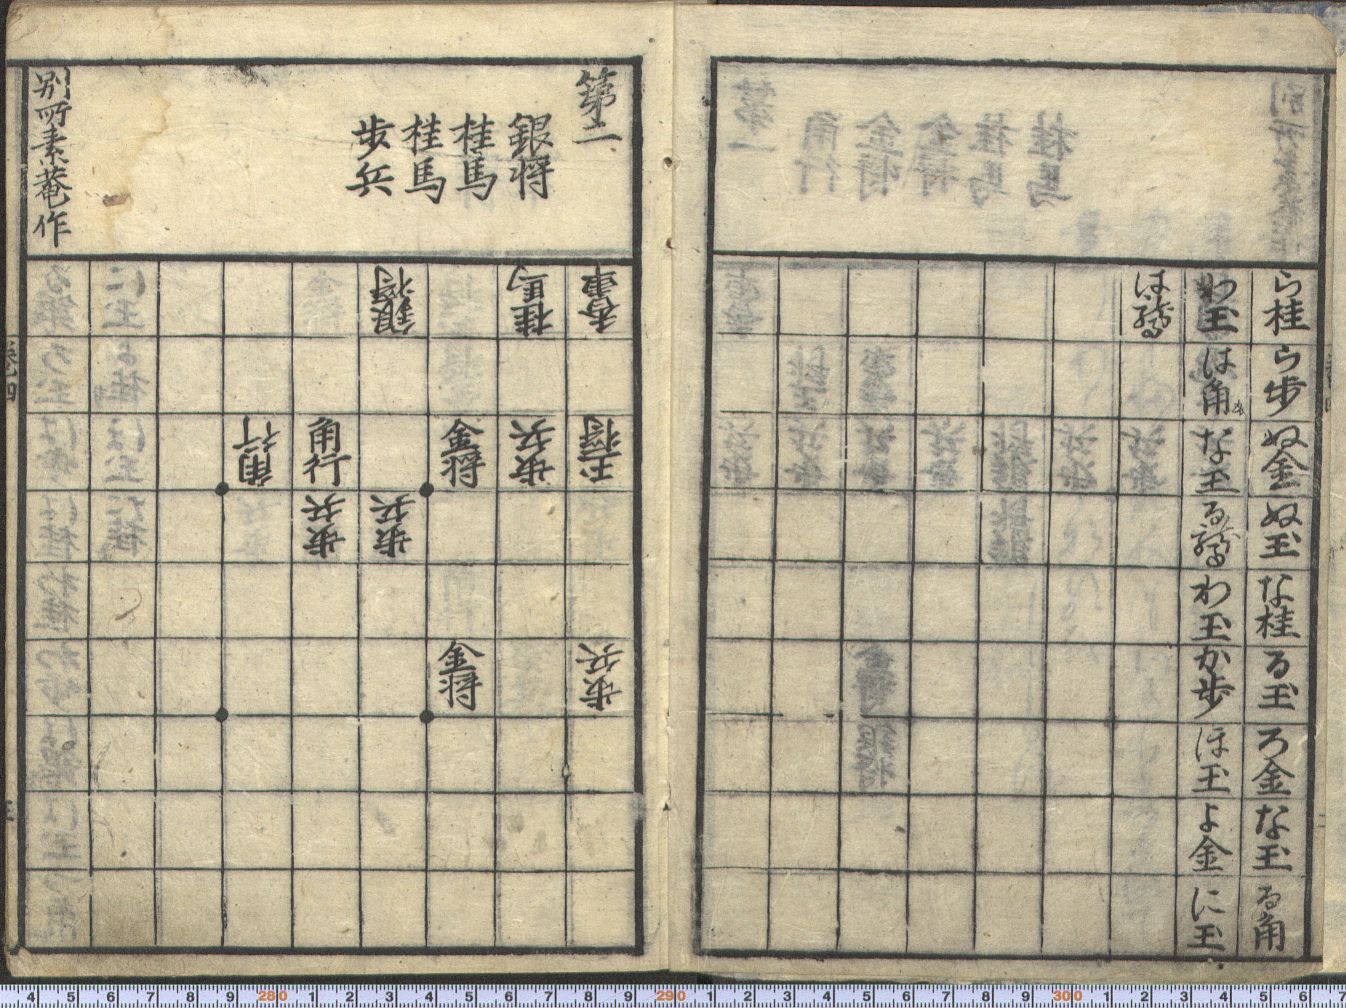 ら桂
ら歩
ぬ金
ぬ玉
な桂
る玉
ろ金
な玉
る角
わ玉
は角
な玉
る
わ玉
か歩
ほ玉
よ金
に玉
は
第二
銀将
桂馬
桂馬
歩兵
別所素菴作
香車
玉将
歩兵
桂馬
歩兵
金将
金将
銀将
歩兵
角行
歩兵
角行